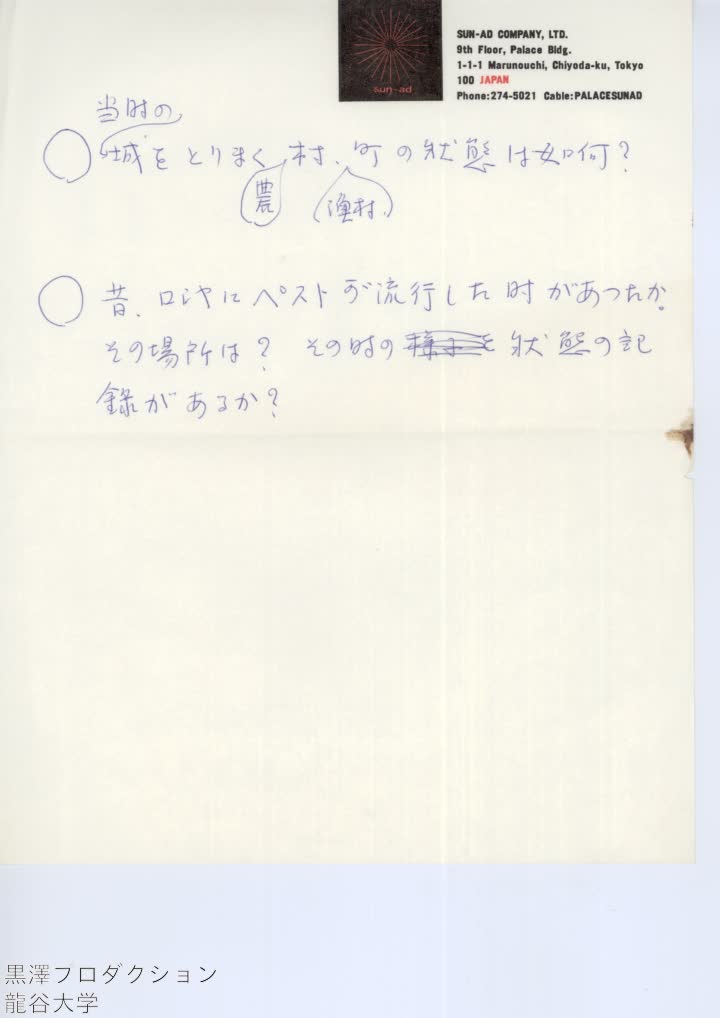 sun-ad
SUN-AD COMPANY, LTD.
9th Floor, Palace Bldg.
1-1-1 Marunouchi, Chiyoda-ku, Tokyo
100 JAPAN
Phone:274-5021 Cable:PALACESUNAD
当時の
○ 城をとりまく村、町の状態は如何?
農 漁村、
○ 昔、ロシヤにペストが流行した時があつたか。
その場所は? その時の状態の記
録があるか?
黒澤プロダクション
龍谷大学